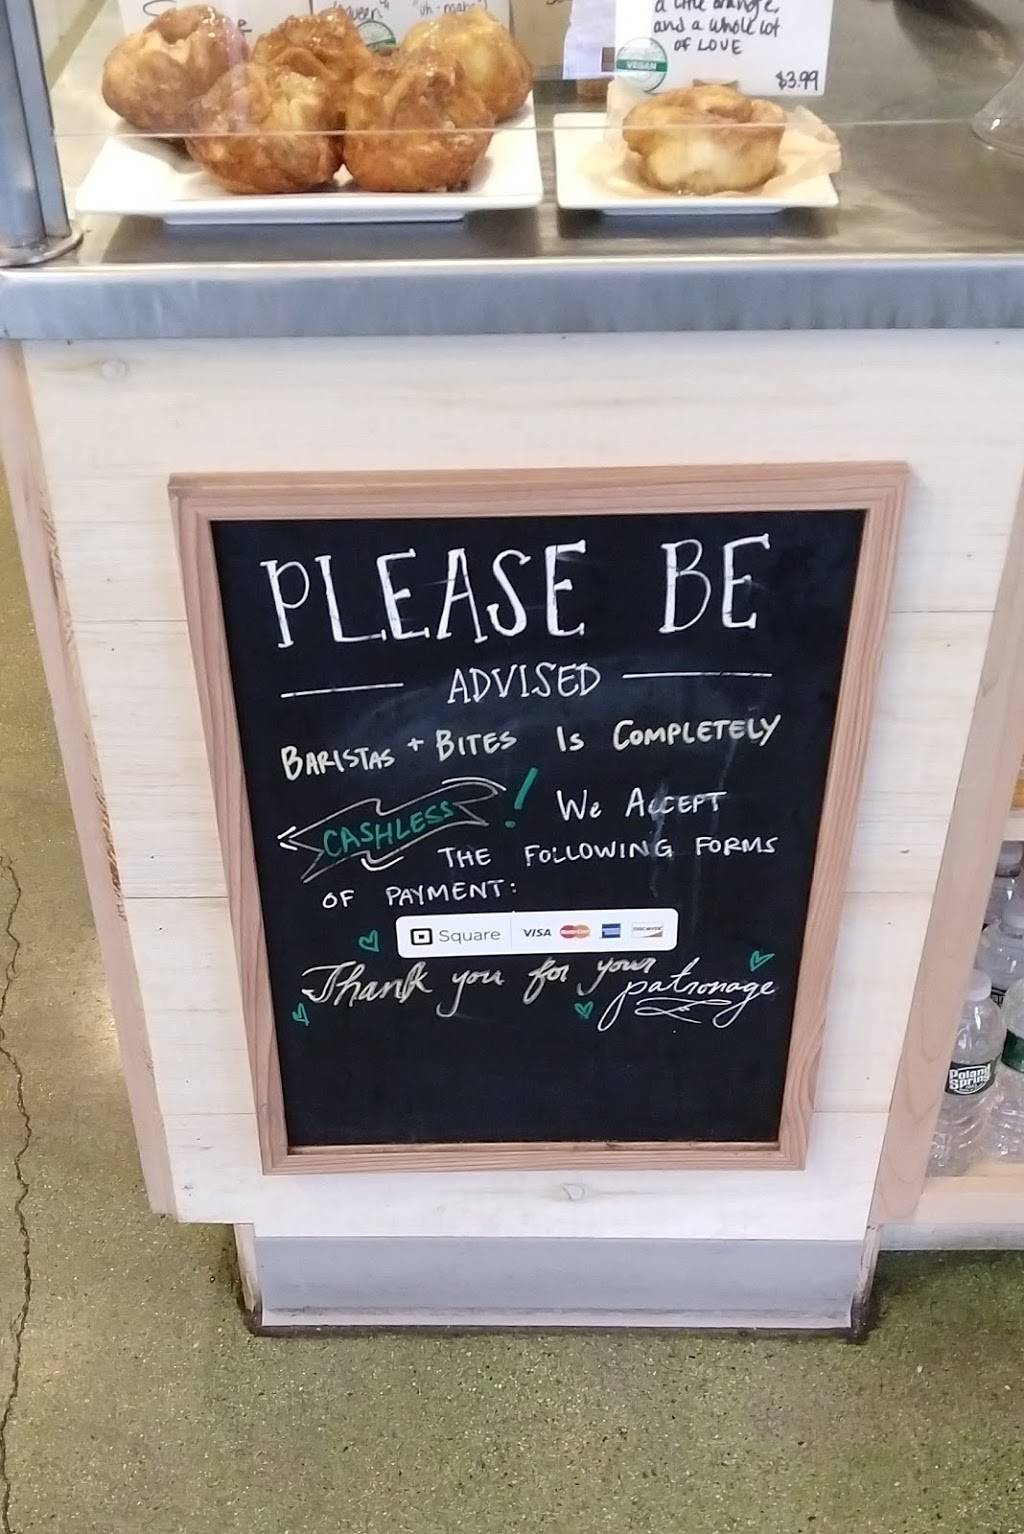 "uh-mahn"
a little orange,
and a whole lot
of LOVE
VEGAN
$3.99
PLEASE BE
ADVISED
BARISTAS + BITES IS COMPLETELY
CASHLESS! WE ACCEPT
THE FOLLOWING FORMS
OF PAYMENT:
Square VISA MasterCard DISCOVER
Thank you for your patronage
Poland
Spring